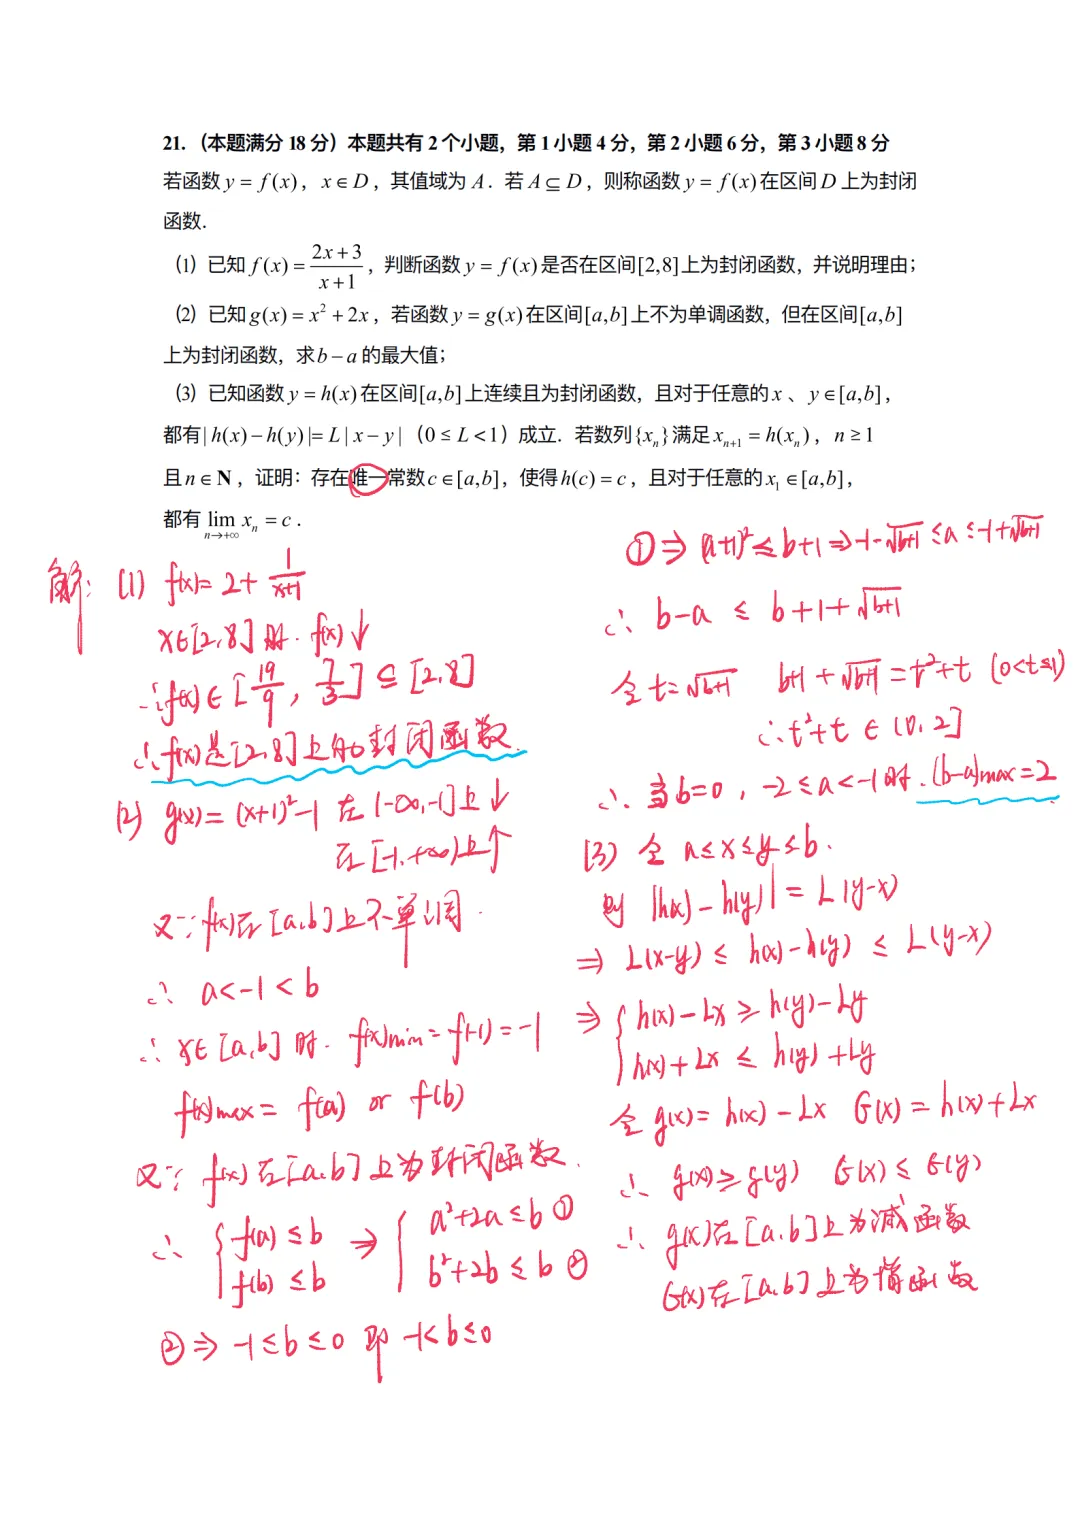 21.（本题满分 18 分）本题共有 2 个小题，第 1 小题 4 分，第 2 小题 6 分，第 3 小题 8 分
若函数 y = f(x)，x∈D，其值域为 A．若 A⊆D，则称函数 y = f(x) 在区间 D 上为封闭
函数．
（1）已知 f(x) = (2x+3)/(x+1)，判断函数 y = f(x) 是否在区间[2,8]上为封闭函数，并说明理由；
（2）已知 g(x) = x² + 2x，若函数 y = g(x) 在区间[a,b]上不为单调函数，但在区间[a,b]
上为封闭函数，求 b − a 的最大值；
（3）已知函数 y = h(x) 在区间[a,b]上连续且为封闭函数，且对于任意的 x 、y∈[a,b]，
都有| h(x) − h(y) |= L | x − y |（0 ≤ L < 1）成立．若数列{xₙ}满足 xₙ₊₁ = h(xₙ)，n ≥ 1
且 n∈N，证明：存在唯一常数 c∈[a,b]，使得 h(c) = c，且对于任意的 x₁∈[a,b]，
都有 lim xₙ = c．
n→+∞
解：(1) f(x)= 2+ 1/(x+1)
x∈[2,8]时. f(x)↓
∴f(x)∈[19/9, 7/3]⊆[2,8]
∴f(x)是[2,8]上的封闭函数.
(2) g(x)= (x+1)²-1 在(-∞,-1]上↓
在[-1,+∞)上↑
又∵f(x)在[a,b]上不单调.
∴ a<-1<b
∴ x∈[a,b]时. f(x)min=f(-1)=-1
f(x)max= f(a) or f(b)
又∵ f(x)在[a,b]上为封闭函数.
∴ { f(a)≤b ⇒ { a²+2a≤b ①
f(b)≤b b²+2b≤b ②
②⇒ -1≤b≤0 即 -1<b≤0
①⇒ (a+1)²≤b+1⇒-1-√(b+1)≤a≤-1+√(b+1)
∴ b-a ≤ b+1+√(b+1)
令t=√(b+1) b+1+√(b+1)=t²+t (0<t≤1)
∴t²+t∈(0,2]
∴当b=0, -2≤a<-1时.(b-a)max=2
(3) 令 a≤x≤y≤b.
则 |h(x)-h(y)|= L(y-x)
⇒ L(x-y)≤ h(x)-h(y) ≤ L(y-x)
⇒ { h(x)-Lx ≥ h(y)-Ly
h(x)+Lx ≤ h(y)+Ly
令g(x)= h(x)-Lx G(x)= h(x)+Lx
∴ g(x)≥g(y) G(x)≤G(y)
∴ g(x)在[a,b]上为减函数
G(x)在[a,b]上为增函数